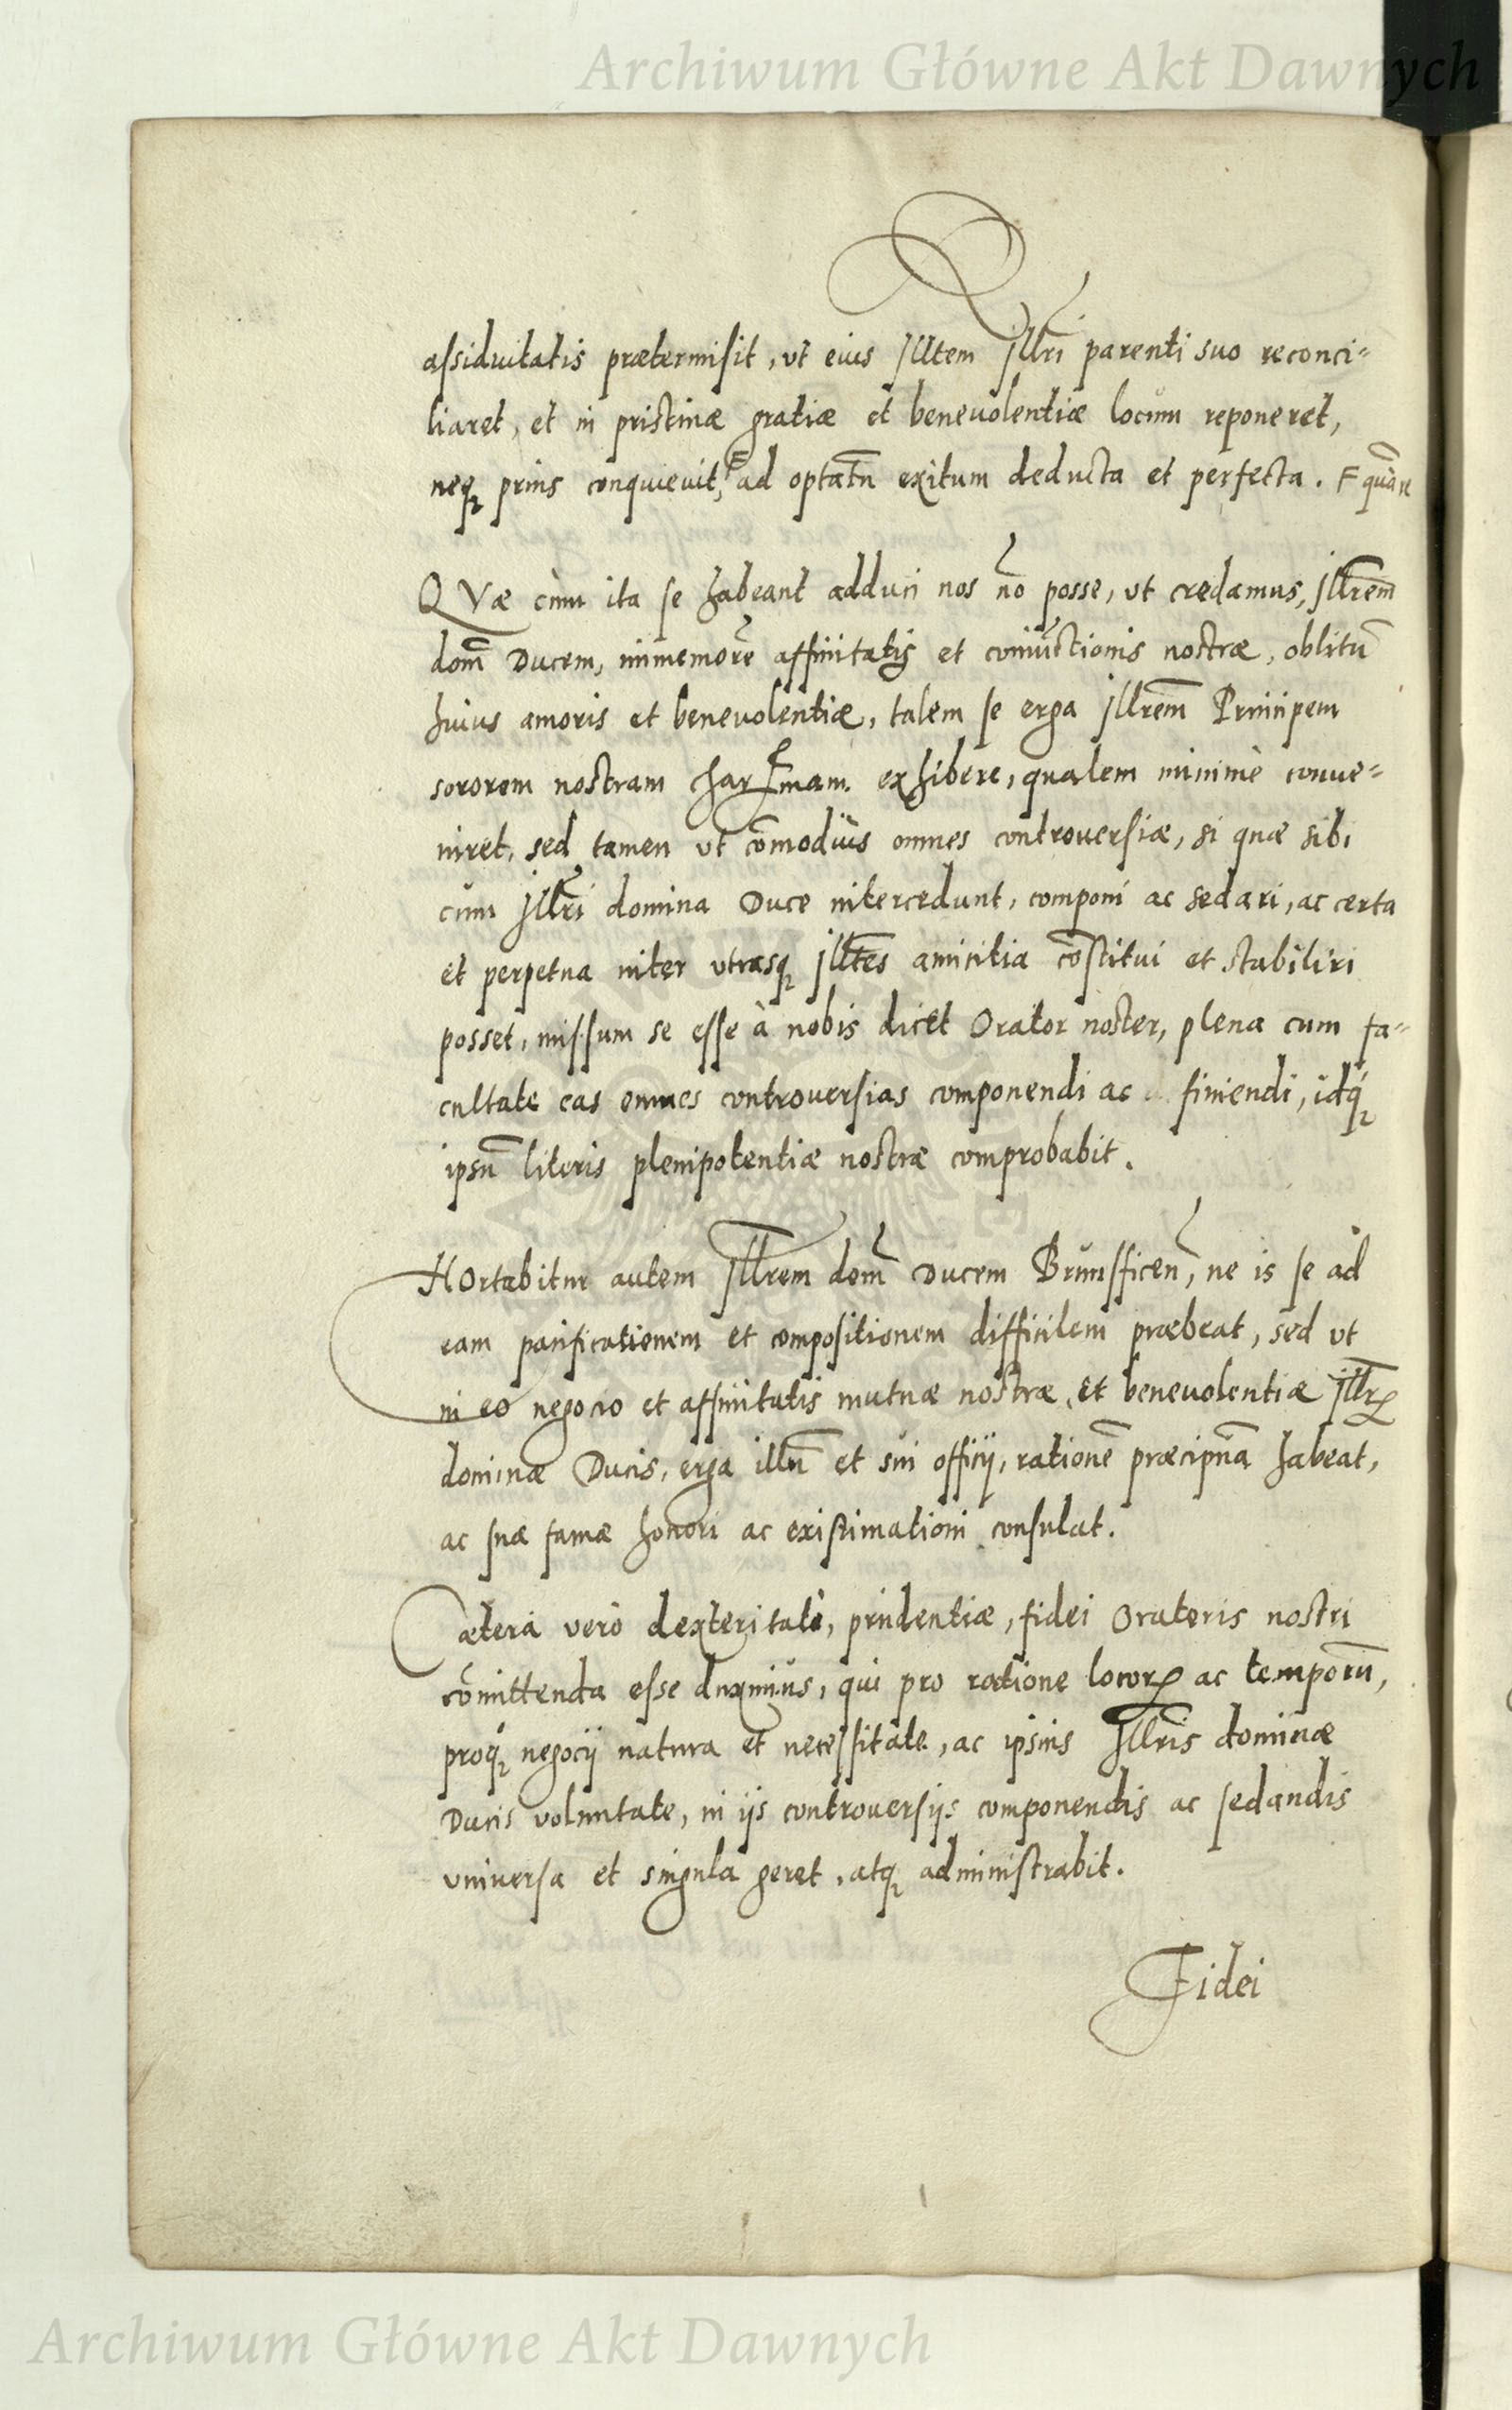 Archiwum Główne Akt Dawnych
assiduitatis prætermisit, ut eius Illtem Illri parenti suo reconci=
liaret, et in pristinæ gratiæ et benevolentiæ locum reponeret,
neq prius conquievit, F ad optatū exitum deducta et perfecta. F quā re
QVæ cùm ita se habeant adduci nos nō posse, ut credamus, Illrem̄
dom̄ Ducem, immemorē affinitatis et coniūctionis nostræ, oblitū
huius amoris et benevolentiæ, talem se erga Illrem̄ Principem
sororem nostram char mam. exhibere, qualem minimè conve=
niret, sed tamen ut cōmodius omnes controversiæ, si quæ sibi
cum Illri domina Duce intercedunt, componi ac sedari, ac certa
et perpetua inter utrasq Illtes amicitia cōstitui et stabiliri
posset, missum se esse à nobis dicet Orator noster, plena cum fa=
cultate eas omnes controversias componendi ac finiendi, idq
ipsū literis plenipotentiæ nostræ comprobabit.
HOrtabitur autem Illrem dom̄ Ducem Brunsficen, ne is se ad
eam pacificationem et compositionem difficilem præbeat, sed ut
in eo negocio et affinitatis mutuæ nostræ, et benevolentiæ Illr
dominæ Ducis, erga illū et sui officij, rationē præcipuā habeat,
ac suæ famæ honori ac existimationi consulat.
Cætera verò dexteritati, prudentiæ, fidei Oratoris nostri
cōmittenda esse duximus, qui pro ratione locorꝝ ac temporū,
proq negocij natura et necessitate, ac ipsius Illris dominæ
Ducis voluntate, in ijs controversijs componendis ac sedandis
universa et singula geret, atq administrabit.
Fidei
Archiwum Główne Akt Dawnych